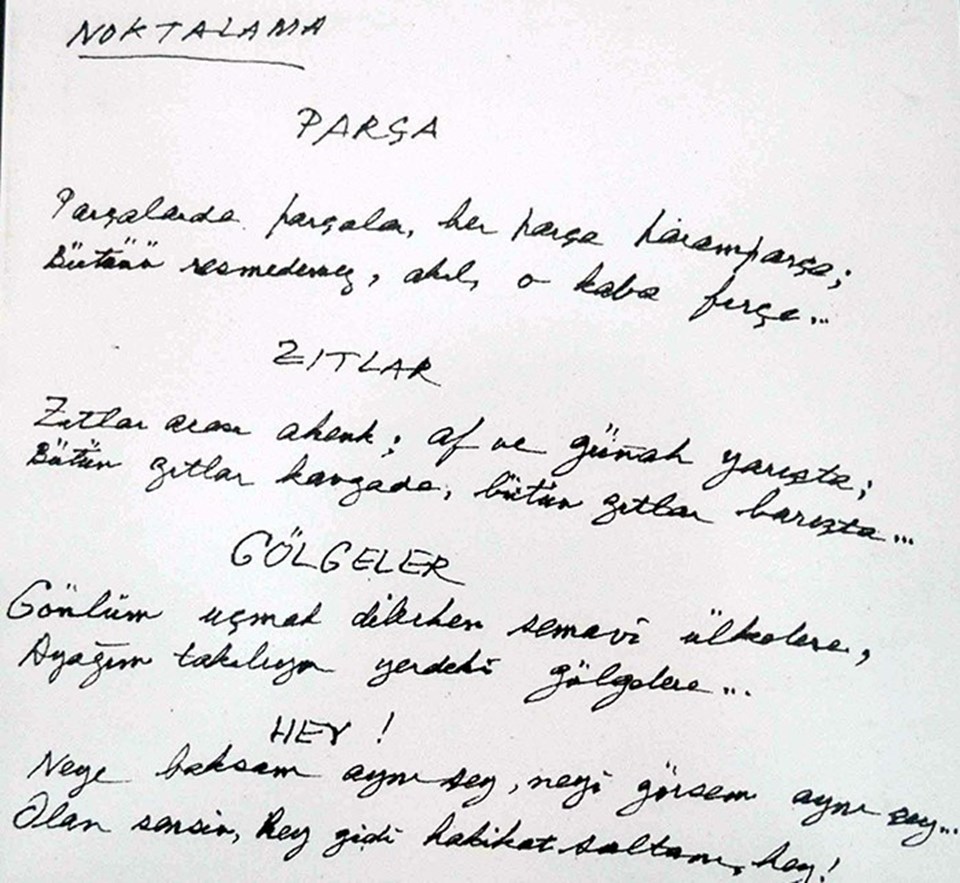 NOKTALAMA
PARÇA
Parçalarda parçalar, her parça paramparça;
Bütünü resmedemez, akıl, o kaba fırça...
ZITLAR
Zıtlar arası ahenk; af ve günah yarışta;
Bütün zıtlar kavgada, bütün zıtlar barışta...
GÖLGELER
Gönlüm uçmak dilerken semavi ülkelere,
Ayağım takılıyor yerdeki gölgelere...
HEY!
Neye baksam aynı şey, neyi görsem aynı şey...
Olan sensin, hey gidi hakikat sultanı, hey!